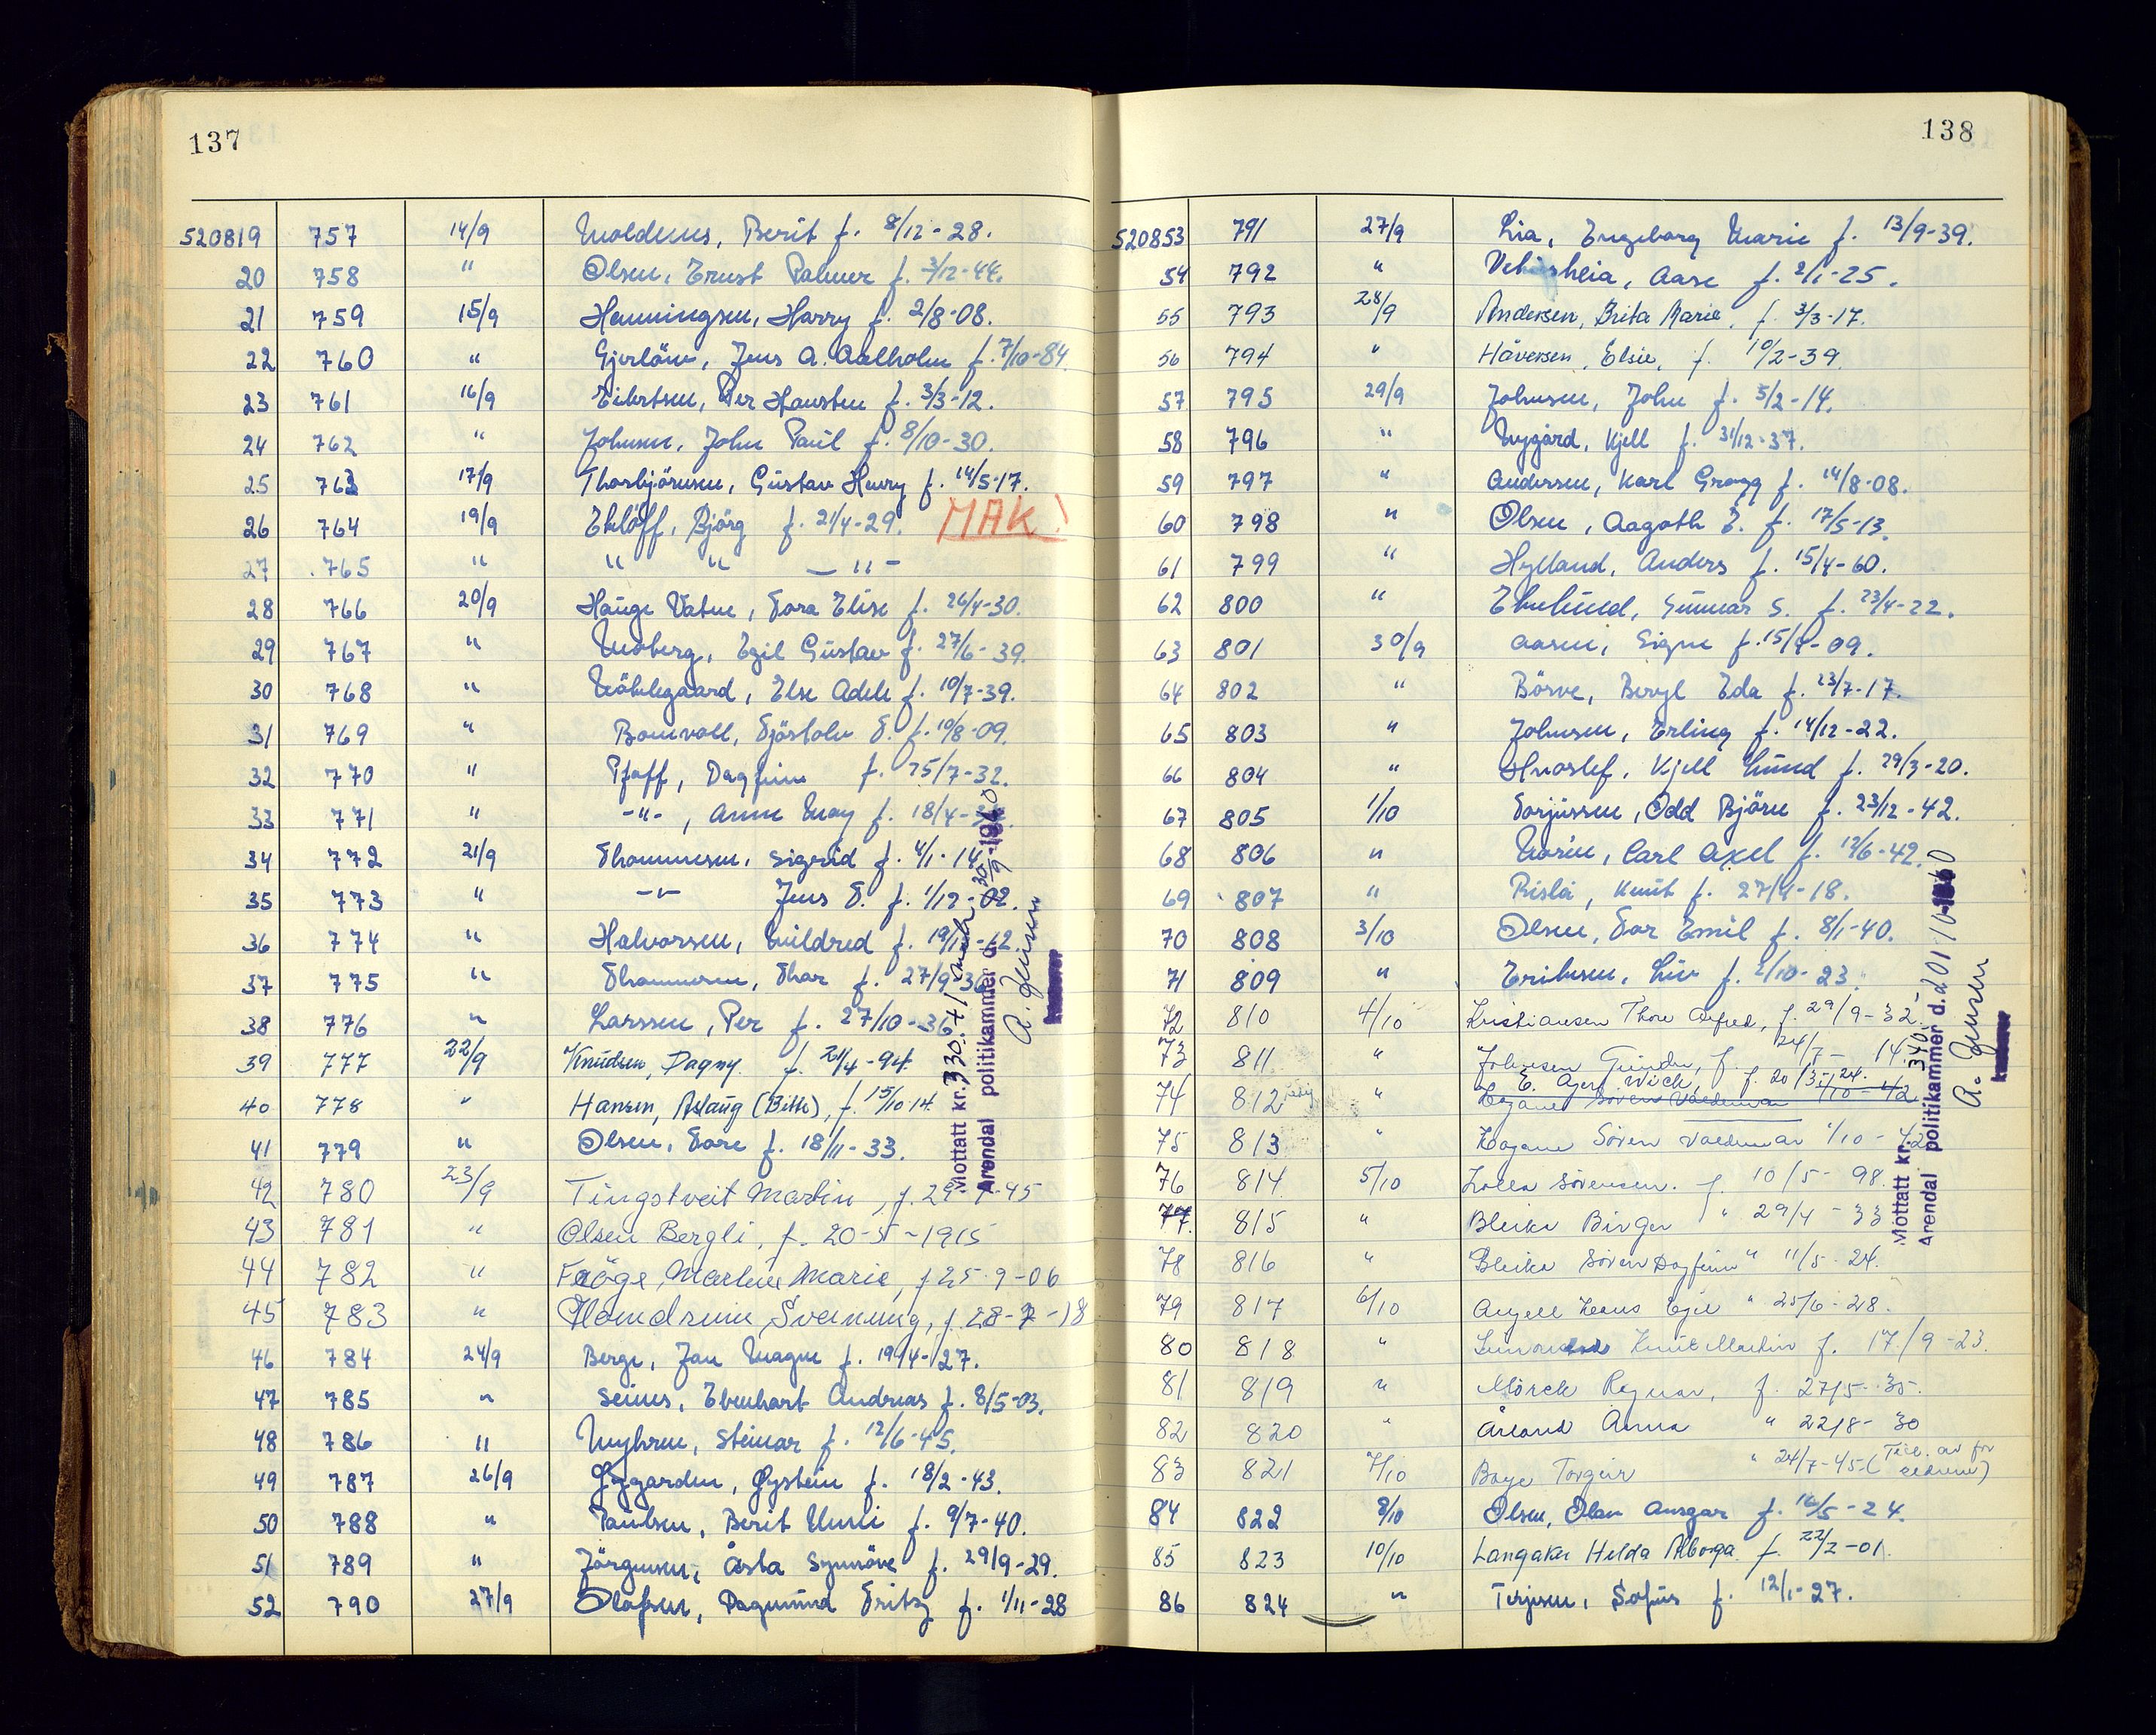 137
520819 757 14/9 Moldenes, Berit f. 8/12-28.
20 758 " Olsen, Ernst Palmer f. 3/12-44.
21 759 15/9 Henningsen, Harry f. 2/8-08.
22 760 " Gjerlöw, Jens A. Aalholm f. 7/10-84.
23 761 16/9 Eilertsen, Per Hausten f. 3/3-12.
24 762 " Johnsen, John Paul f. 8/10-30.
25 763 17/9 Thorbjörnsen, Gustav Henry f. 14/5-17.
26 764 19/9 Eklöff, Björg f. 21/4-29. MAK!
27 765 " " " — " —
28 766 20/9 Hauge Vatne, Tora Elise f. 26/4-30.
29 767 " Moberg, Egil Gustav f. 27/6-39.
30 768 " Nöklegaard, Else Adele f. 10/7-39.
31 769 " Bomvoll, Tjöstolv T. f. 10/8-09.
32 770 " Pfaff, Dagfinn f. 25/7-32.
33 771 " -"-, Anne May f. 18/4-
34 772 21/9 Thommesen, Sigrid f. 4/1-14.
35 773 " -"- Jens T. f. 1/12-02.
36 774 " Halvorsen, Mildred f.
37 775 " Thommesen, Thor f. 27/9-36
38 776 " Larssen, Per f. 27/10-36
39 777 22/9 Knudsen, Dagny f. 21/4-94
40 778 " Hansen, Aslaug (Bitte), f. 15/10 14.
41 779 " Olsen, Tore f. 18/11-33.
42 780 23/9 Tingstveit Martin, f. 29 45
43 781 " Olsen Bergli, f. 20-5-1915
44 782 " Marie, f 25-9-06
45 783 " f. 28-7-18
46 784 24/9 Berge, Jan Magne f. 19/4-27.
47 785 " Seines, Edenhart Andreas f. 8/5-03.
48 786 " Myhren, Steinar f. 12/6-45.
49 787 26/9 Øygarden, Øystein f. 18/2-43.
50 788 " Paulsen, Berit Unni f. 9/7-40.
51 789 " Jörgensen, Åsta Synnöve f. 29/9-29.
52 790 27/9 Olafsen, Dagmund Fritz f. 1/11-28
Mottatt kr. 330.+1
Arendal politikammer d. 30/9-1960
A. Jensen
kasserer
138
520853 791 27/9 Lia, Engeborg Marie f. 13/9-39.
54 792 " Aase f. 2/1-25.
55 793 28/9 Andersen, Brita Marie, f. 3/3-17.
56 794 " Håversen, Elsie, f. 10/2-39.
57 795 29/9 Johnsen, John f. 5/2-14.
58 796 " Nygård, Kjell f. 31/12-37.
59 797 " Andersen, Karl Gragg f. 14/8-08.
60 798 " Olsen, Aagoth E. f. 17/5-13.
61 799 " Hylland, Anders f. 15/4-60.
62 800 " Gunnar S. f. 23/4-22.
63 801 30/9 Aasen, Signe f. 15/9-09.
64 802 " Börve, Beryl Eda f. 23/7-17.
65 803 " Johnsen, Erling f. 14/12-22.
66 804 " Hvoslef, Kjell Lund f. 29/3-20.
67 805 1/10 Torjussen, Odd Björn f. 23/12-42.
68 806 " Carl Axel f. 12/6-42.
69 807 " Rislå, Knut f. 27/9-18.
70 808 3/10 Olsen, Tor Emil f. 8/1-40.
71 809 " Eriksen, Liv f. 2/10-23.
72 810 4/10 Kristiansen Thore Alfred, f. 29/9-32.
73 811 " Johnsen Gunder, f. 24/7-14.
74 812 " E. Agert Wick, f. 20/3-24.
Hogane Sören Valdemar 1/10-42
75 813 " Hogane Sören Valdemar 1/10-42
76 814 5/10 Sörensen. f. 10/5-98.
77. 815 " Bleika Birger " 29/4-33
78 816 " Bleika Sören Dagfinn " 11/5-24.
79 817 6/10 Angell Hans Egil " 25/6-28.
80 818 " Knut Martin f. 17/9-23.
81 819 " Mörch Ragnar, f. 27/5-35.
82 820 " Årland Anna " 22/8-30
83 821 7/10 Boye Torgeir " 24/7-45 (Till. av for
eldrene)
84 822 8/10 Olsen, Olav Ansgar f. 16/5-24.
85 823 10/10 Langaker Helda Alborga f. 22/2-01.
86 824 " Terjesen, Sofus f. 12/1-27.
Mottatt kr. 340,
Arendal politikammer d. 01/10-1960
A. Jensen
kasserer